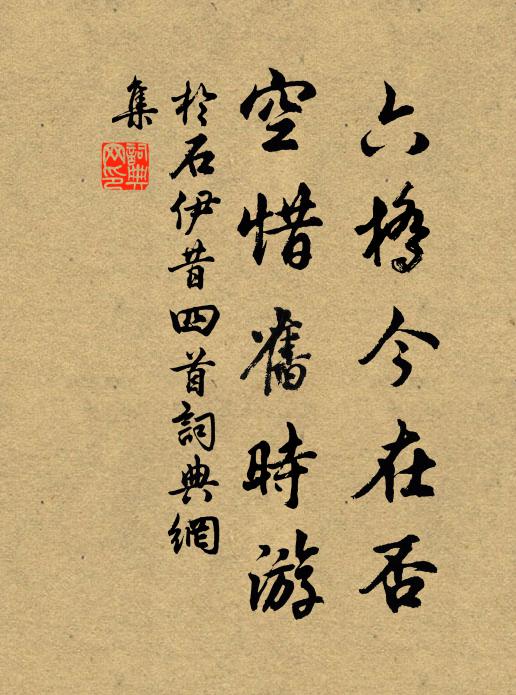 六橋今在否
空惜舊時游
於石伊昔四首詞典網
集
詞典網印